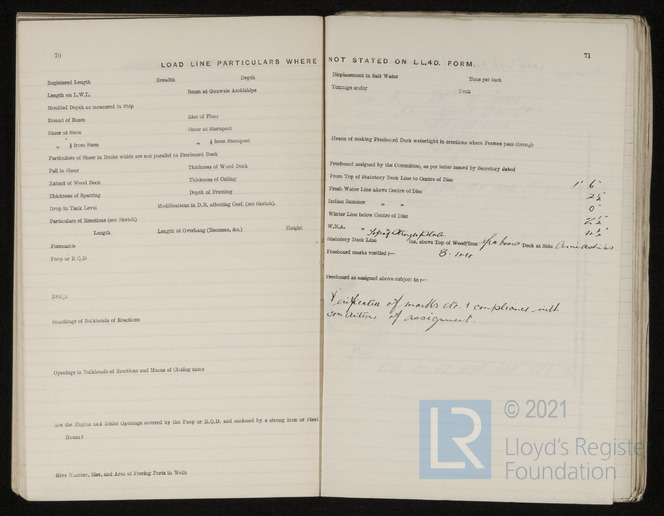 70
LOAD LINE PARTICULARS WHERE
Registered Length Breadth Depth
Length on L.W.L. Beam at Gunwale Amidships
Moulded Depth as measured in Ship
Round of Beam Rise of Floor
Sheer at Stem Sheer at Sternpost
" ⅛ from Stem " ⅛ from Sternpost
Particulars of Sheer in Decks which are not parallel to Freeboard Deck
Fall in Sheer Thickness of Wood Deck
Extent of Wood Deck Thickness of Ceiling
Thickness of Sparring Depth of Framing
Drop in Tank Level Modifications in D.B. affecting Coef. (see Sketch).
Particulars of Erections (see Sketch)
Length Length of Overhang (Recesses, &c.) Height
Forecastle
Poop or R.Q.D
Bridge
Scantlings of Bulkheads of Erections
Openings in Bulkheads of Erections and Means of Closing same
Are the Engine and Boiler Openings covered by the Poop or R.Q.D. and enclosed by a strong Iron or Steel
House?
Give Number, Size, and Area of Freeing Ports in Wells
71
NOT STATED ON LL.40. FORM.
Displacement in Salt Water Tons per inch
Tonnage under Deck
Means of making Freeboard Deck watertight in erections where Frames pass through
Freeboard assigned by the Committee, as per letter issued by Secretary dated
From Top of Statutory Deck Line to Centre of Disc 1' 6"
Fresh Water Line above Centre of Disc 2½"
Indian Summer " " 0"
Winter Line below Centre of Disc 2½"
W.N.A. "
Statutory Deck Line ins. above Top of Wood/Iron freeboard Deck at Side Amidships
Freeboard marks verified :—
Freeboard as assigned above subject to :—
Verification of marks etc. & compliance with
conditions of assignment.
LR
© 2021
Lloyd's Register
Foundation